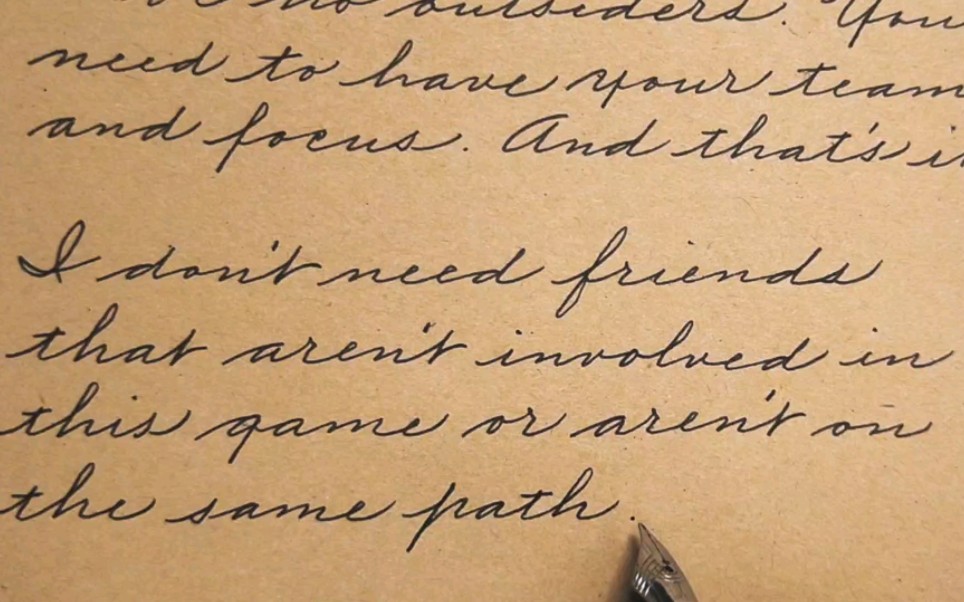 no outsiders. You
need to have your team
and focus. And that's
I don't need friends
that aren't involved in
this game or aren't on
the same path.